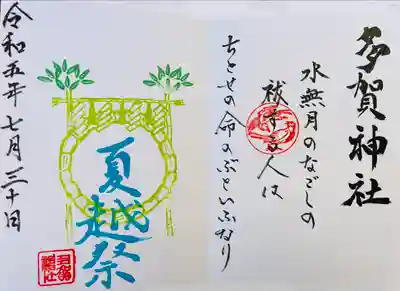 多賀神社
水無月のなごしの
祓する人は
ちとせの命のぶといふなり
夏越祭
令和五年七月三十日